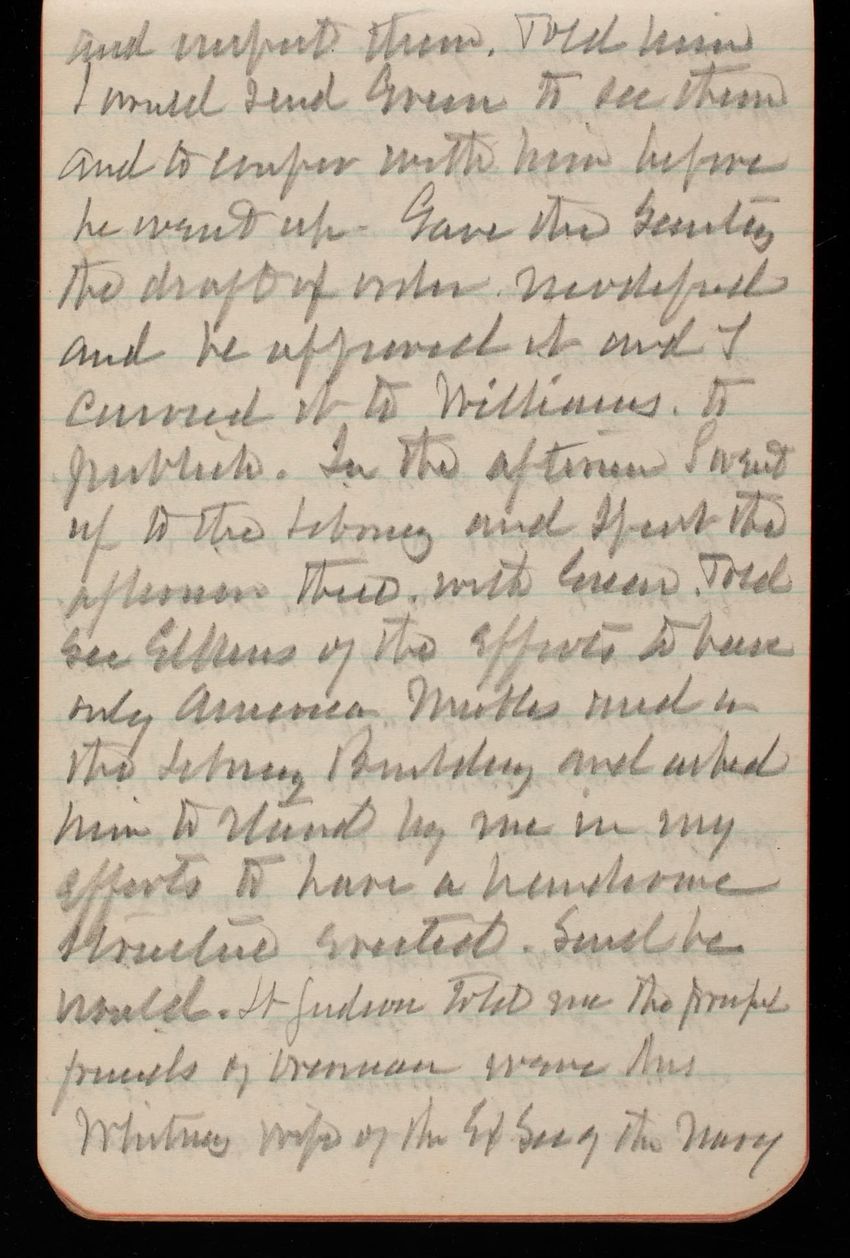 and inspect them. Told him
I would send Green to see them
and to confer with him before
he went up. Gave the Secretary
the draft of order modified
and he approved it and I
carried it to Williams. to
publish. In the afternoon I went
up to the Library and spent the
afternoon there. with Green. Told
Sec Elkins of the efforts to have
only America Marbles used in
the Library Building and asked
him to stand by me in my
efforts to have a handsome
structure erected. Said he
would. Lt Judson told me the
friends of were Mrs
Whitney wife of the Ex Sec of the Navy